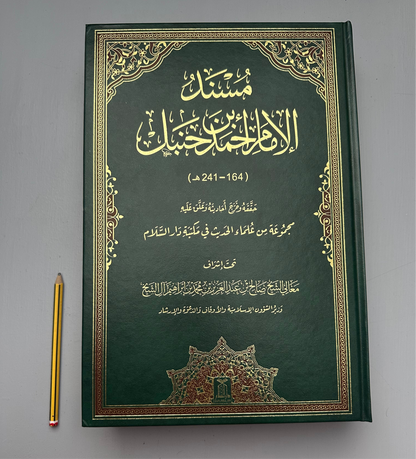 مُسْنَدُ
الإمَامِ أحْمَدَ بْنِ حَنْبَل
(164-241 هـ)
حَقَّقَهُ وَخَرَّجَ أَحَادِيثَهُ وَعَلَّقَ عَلَيْهِ
مَجْمُوعَة مِن عُلَمَاءِ الحَدِيث فِي مَكتَبة دَارِ السَّلَام
تحتَ إشرَاف
مَعَالي الشَّيخ صَالح بْن عَبْد العَزيز بْن مُحمّد بْن إبرَاهيم آل الشَّيخ
وَزير الشؤون الإسلَاميّة وَالأوقاف وَالدعْوة وَالإرشَاد